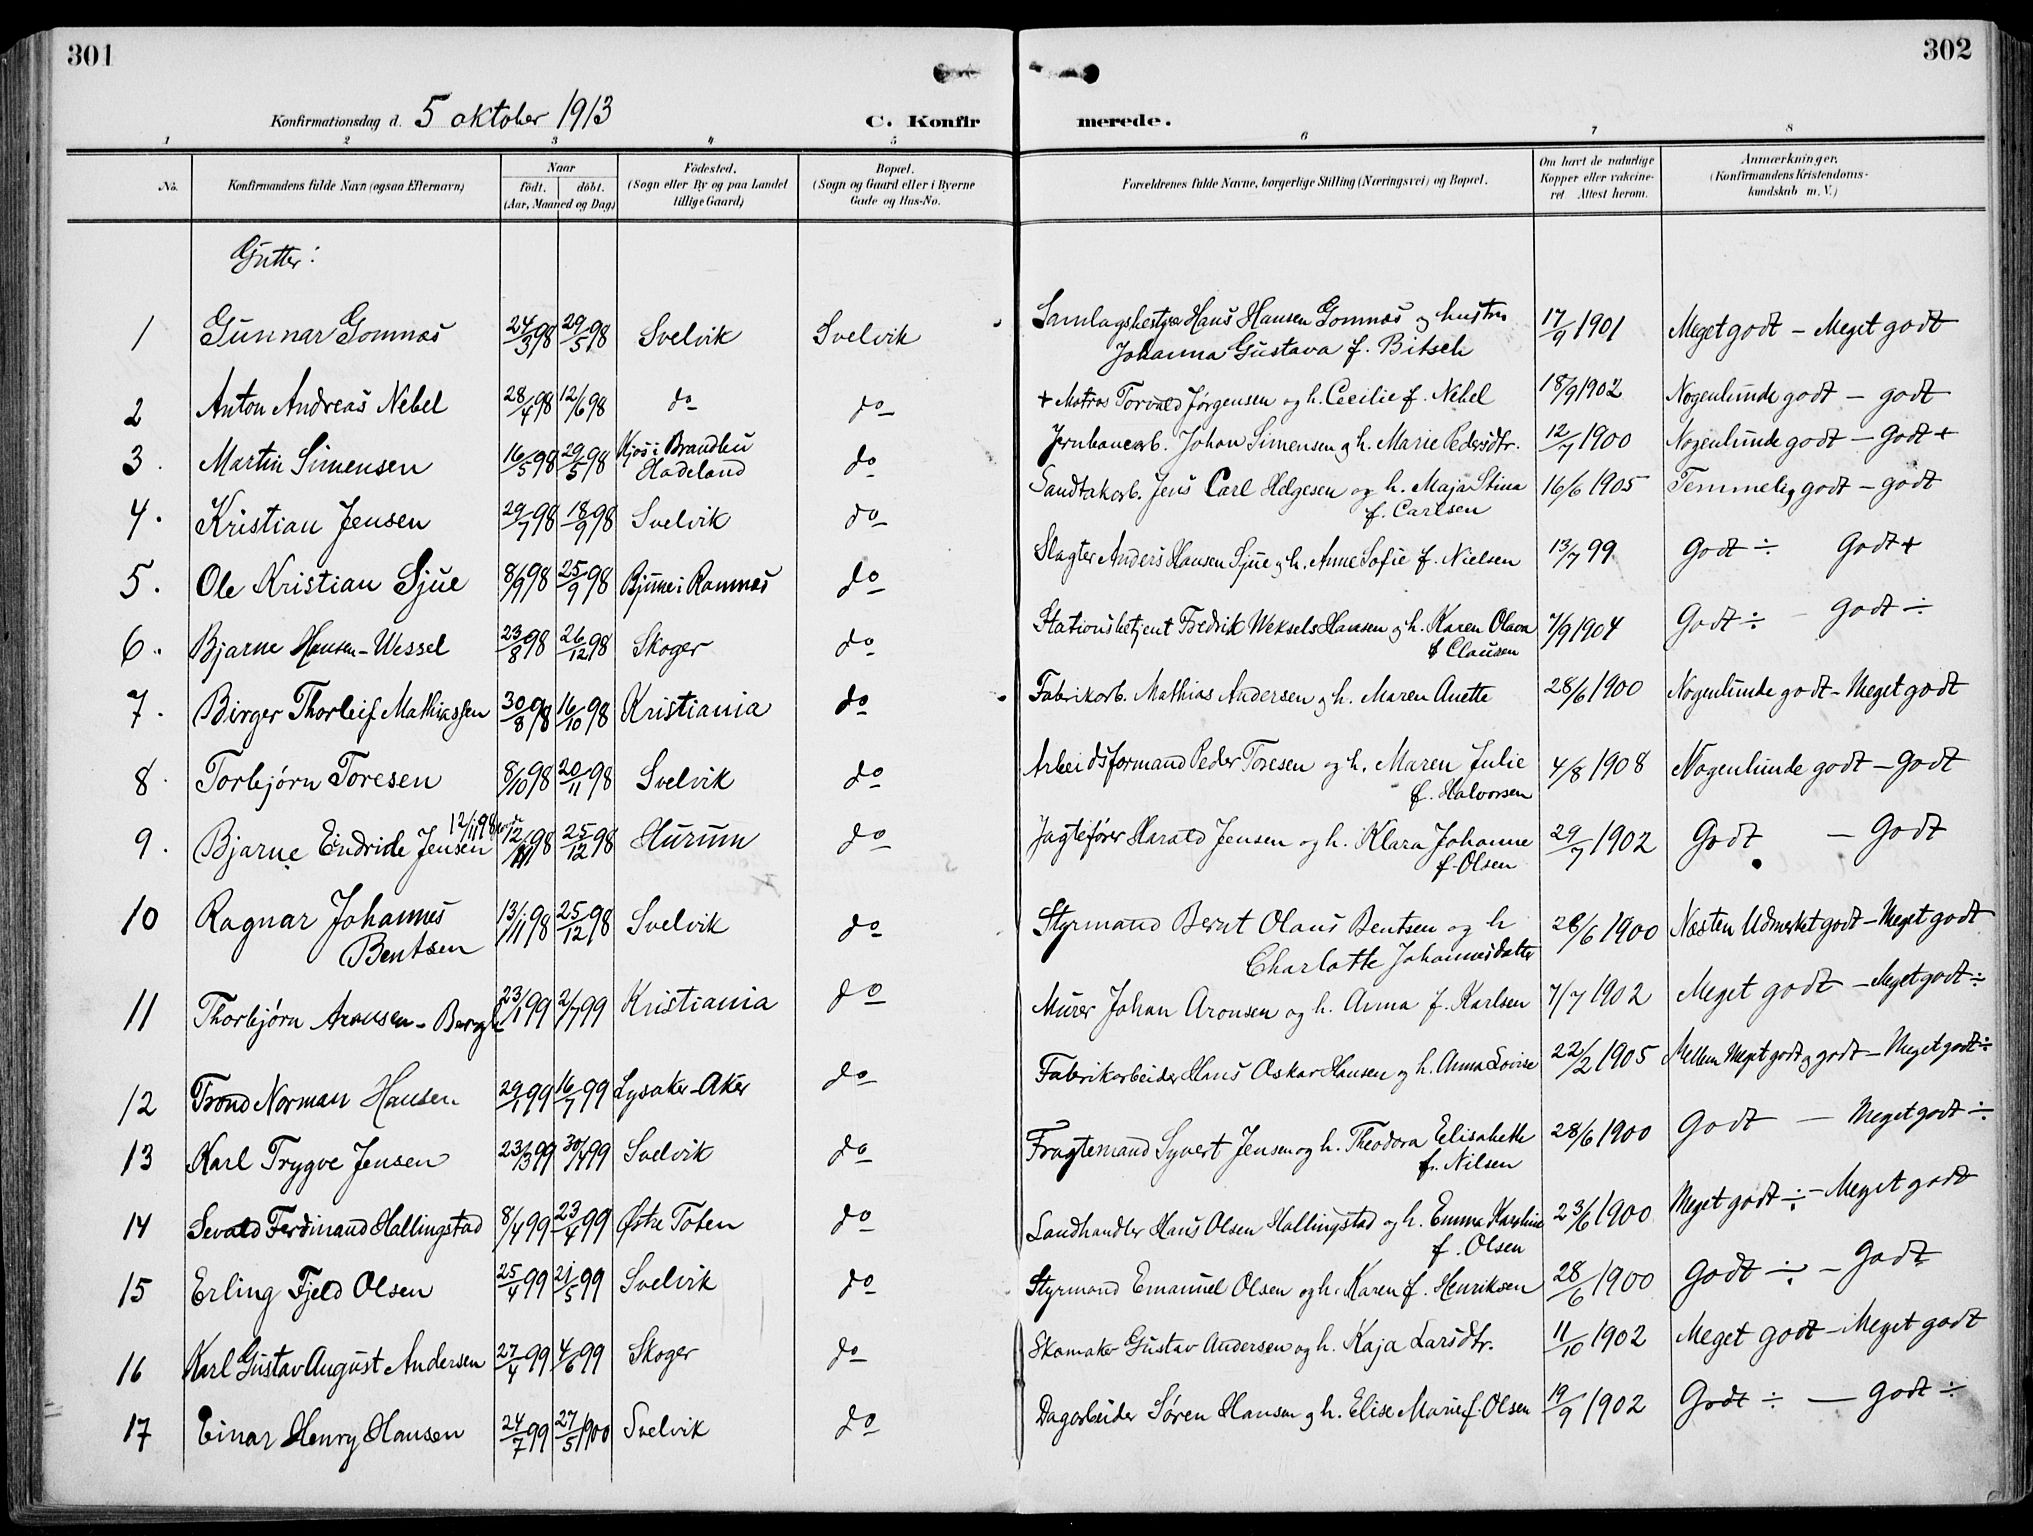 301
302
Konfirmationsdag d. 5 oktober 1913
C. Konfirmerede.
1 2 3 4 5 6 7 8
No. Konfirmandens fulde Navn (ogsaa Efternavn) Naar födt. döbt. (Aar, Maaned og Dag) Födested. (Sogn eller By og paa Landet tillige Gaard) Bopæl. (Sogn og Gaard eller i Byerne Gade og Hus-No. Forældrenes fulde Navne, borgerlige Stilling (Næringsvei) og Bopæl. Om havt de naturlige Kopper eller vakcineret Attest herom. Anmærkninger. (Konfirmandens Kristendomskundskab m. V.)
Gutter:
1 Gunnar Gomnæs 24/3 98 29/5 98 Svelvik Svelvik Samlagsbestyrer Hans Hansen Gomnæs og hustru 17/9 1901 Meget godt - Meget godt
Johanna Gustava f. Bitsch
2 Anton Andreas Nebel 28/4 98 12/6 98 do do + Matros Torvald Jørgensen og h. Cecilie f. Nebel 18/9 1902 Nogenlunde godt - godt
3. Martin Simensen 16/5 98 29/5 98 Kjos i Brandbu Hadeland do Jernbanearb. Johan Simensen og h. Marie Pedersdtr. 12/7 1900 Nogenlunde godt - Godt +
4. Kristian Jensen 29/7 98 18/9 98 Svelvik do Sandtakarb. Jens Carl Helgesen og h. Maja Stina 16/6 1905 Temmelig godt - godt
f. Carlsen
5. Ole Kristian Sjue 8/9 98 25/9 98 Bjune i Ramnæs do Slagter Anders Hansen Sjue og h. Anne Sofie f. Nielsen 13/7 99 Godt ÷ Godt +
6. Bjarne Hansen-Wessel 23/8 98 26/12 98 Skoger do Stationsbetjent Fredrik Weksels Hansen og h. Karen Olava 7/9 1904 Godt ÷ - Godt ÷
f Clausen
7. Birger Thorleif Mathiassen 30/8 98 16/10 98 Kristiania do Fabrikarb. Mathias Andersen og h. Maren Anette 28/6 1900 Nogenlunde godt - Meget godt
8. Torbjørn Toresen 8/10 98 20/11 98 Svelvik do Arbeidsformand Peder Toresen og h. Maren Julie 4/8 1908 Nogenlunde godt - Godt
f. Halvorsen
12/11 98
9. Bjarne Eindride Jensen 12/11 98 25/12 98 Hurum do Jagtefører Harald Jensen og h. Klara Johanne 29/7 1902 Godt - Godt
f. Olsen
10 Ragnar Johannes 13/11 98 25/12 98 Svelvik do Styrmand Bernt Olaus Bentsen og h 28/6 1900 Næsten Udmerket godt - Meget godt
Bentsen Charlotte Johannesdatter
11 Thorbjørn Aronsen-Bergh 23/1 99 2/7 99 Kristiania do Murer Johan Aronsen og h. Anna f. Karlsen 7/7 1902 Meget godt - Meget godt ÷
12 Trond Norman Hansen 29/1 99 16/7 99 Lysaker-Aker do Fabrikarbeider Hans Oskar Hansen og h. Anna Lovise 22/2 1905 Mellem Meget godt og godt - Meget godt ÷
13 Karl Trygve Jensen 23/3 99 30/4 99 Svelvik do Fragtemand Syvert Jensen og h. Theodora Elisabeth 28/6 1900 Godt - Meget godt ÷
f. Nilsen
14 Sevald Ferdinand Hallingstad 8/4 99 23/4 99 Østre Toten do Landhandler Hans Olsen Hallingstad og h. Emma Karoline 23/6 1900 Meget godt ÷ - Meget godt
f. Olsen
15 Erling Fjeld Olsen 25/4 99 21/5 99 Svelvik do Styrmand Emanuel Olsen og h. Karen f. Henriksen 28/6 1900 Godt ÷ - Godt
16 Karl Gustav August Andersen 27/4 99 4/6 99 Skoger do Skomaker Gustav Andersen og h. Kaja Larsdtr. 11/10 1902 Meget godt - Meget godt
17 Einar Henry Hansen 24/7 99 27/5 1900 Svelvik do Dagarbeider Søren Hansen og h. Elise Marie f. Olsen 19/9 1902 Godt ÷ - Godt ÷